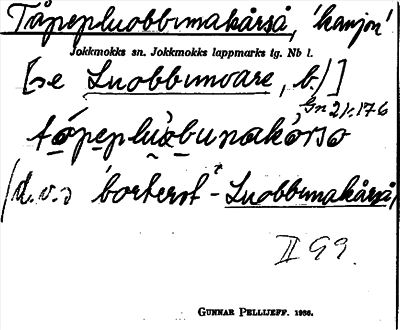 Tåpepluobbmakårså, 'kanjon'
Jokkmokks sn. Jokkmokks lappmarks tg. Nb l.
[se Luobbmvare, b.)]
Gn 21:176
tápeplùobunakårso
(d.v.s 'borterst'-Luobbmakårså)
II 99.
GUNNAR PELLIJEFF. 1986.